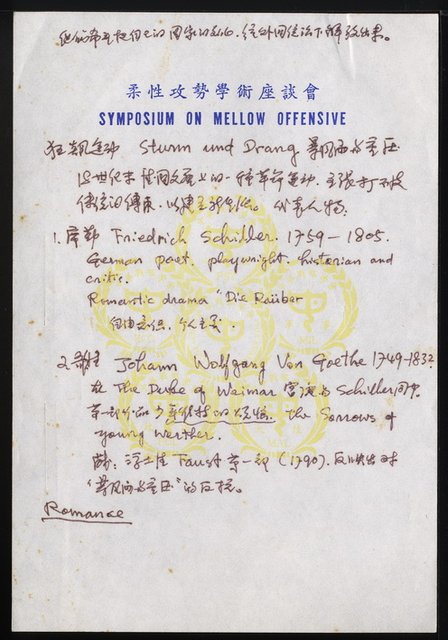 他们希望把自己的国家的文化，從外國統治下解放出来。
柔性攻勢學術座談會
SYMPOSIUM ON MELLOW OFFENSIVE
狂飆運動 Sturm und Drang 暴風雨与重压
18世纪末 德國文藝上的一種革命運動，主張打破
傳統的傳束，以建立新生。代表人物：
1. 席勒 Friedrich Schiller. 1759 — 1805.
German poet, playwright, historian and
critic.
Romantic drama "Die Raüber
自由意识，个人主義.
2. Johann Wolfgang Von Goethe 1749-1832
在 The Duke of Weimar 宮廷与 Schiller 同事.
第一部作品少年维特的烦恼. the Sorrows of
young Werther.
浮士德 Faust 第一部 (1790). 反映出对
"暴风雨与重压"的反抗。
Romance